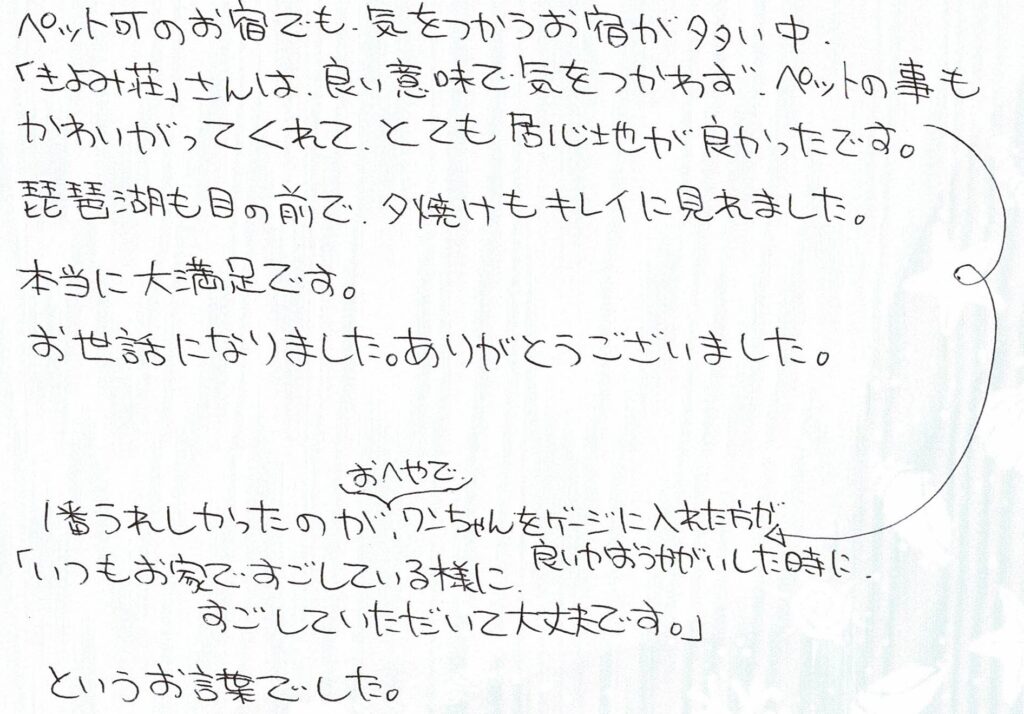 ペット可のお宿でも、気をつかうお宿が多い中、
「きよみ荘」さんは、良い意味で気をつかわず、ペットの事も
かわいがってくれて、とても居心地が良かったです。
琵琶湖も目の前で、夕焼けもキレイに見れました。
本当に大満足です。
お世話になりました。ありがとうございました。
おへやで
1番うれしかったのが、ワンちゃんをゲージに入れた方が
良いかおうかがいした時に、
「いつもお家ですごしている様に
すごしていただいて大丈夫です。」
というお言葉でした。